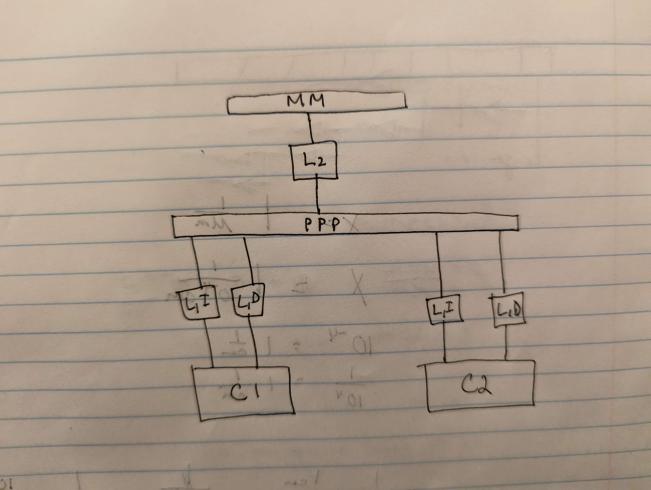 MM
L2
P P P
L1I L1D L1I L1D
C1 C2